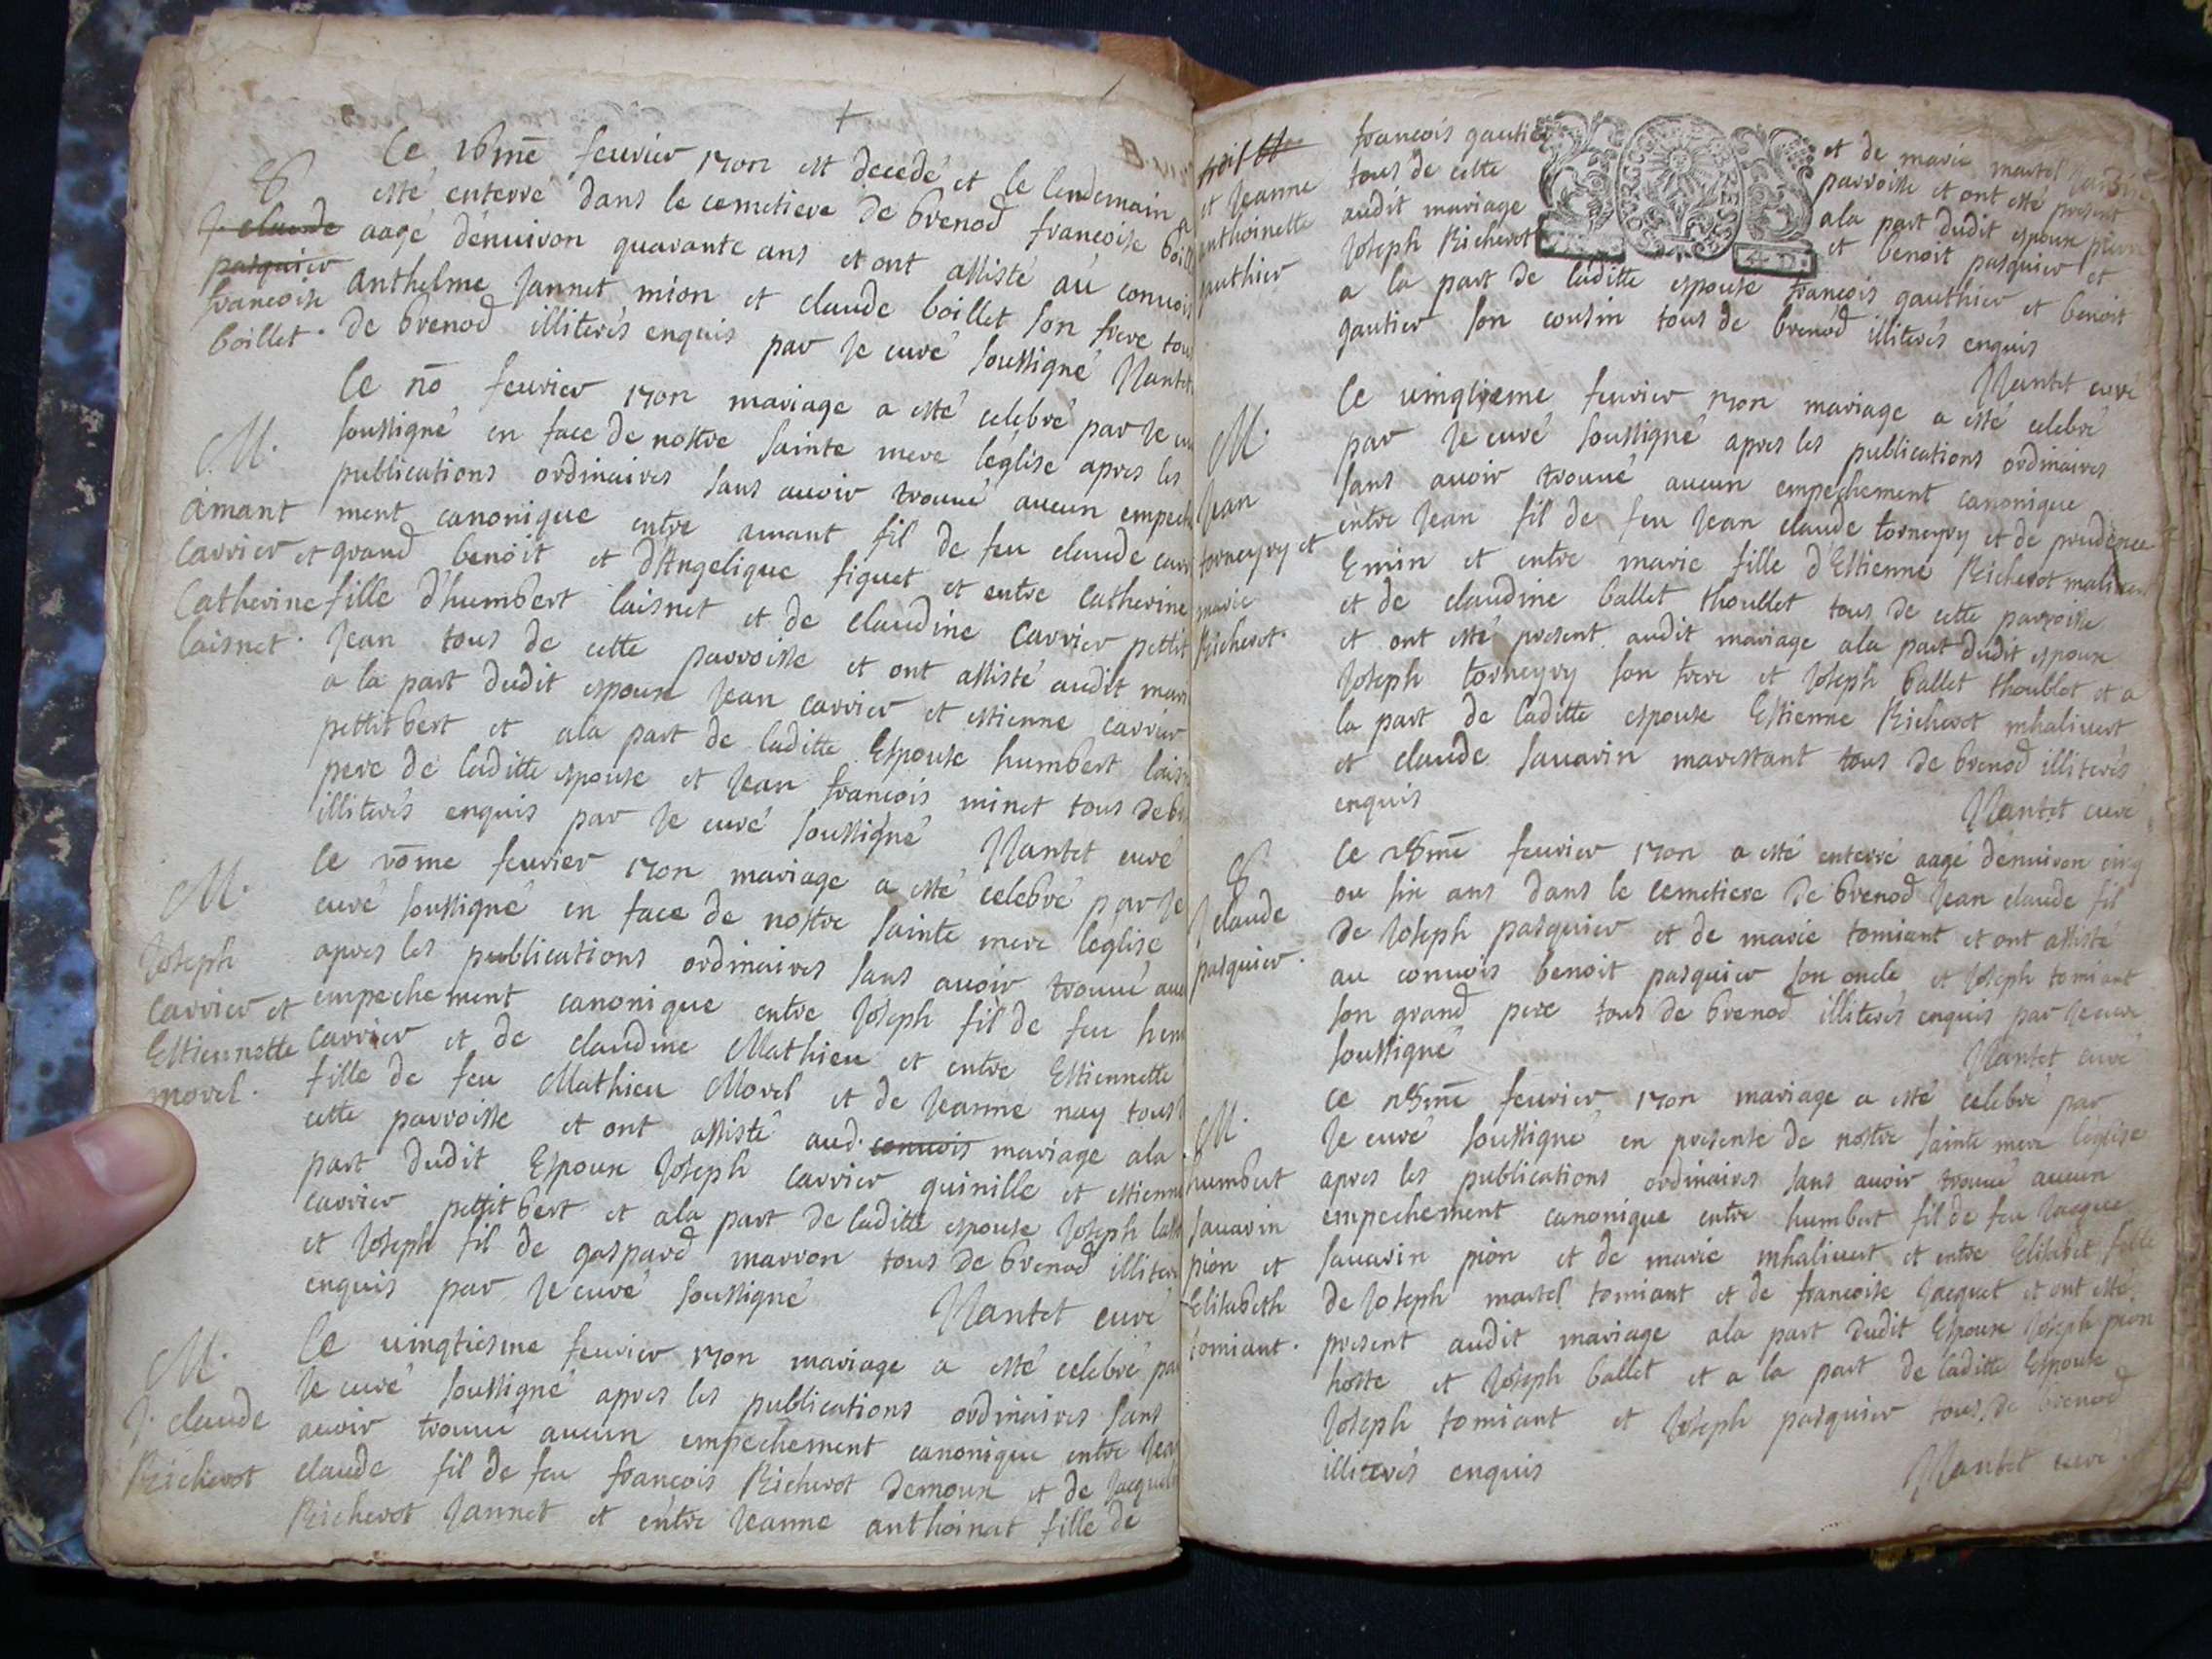 Ce 16me feurier 1701 est decedé et le lendemain a
esté enterré dans le cemetiere de brenod francoise boillet
aagé dénuiron quarante ans et ont assisté au conuois
Anthelme Jannet mion et claude boillet son frere tous
de brenod illiterés enquis par Je curé soussigné Nantet
8
J. claude
pasquier
francoise
boillet.
feurier mariage a esté celebré par Je curé
soussigné en face de nostre sainte mere léglise apres les
publications ordinaires sans auoir trouué aucun empeche
ment canonique entre amant fil de feu claude carrier
grand benoit et d'Angelique figuet et entre Catherine
fille d'humbert laisnet et de claudine Carrier pettit
Jean tous de cette parroisse et ont assisté audit mari
a la part dudit espoux Jean carrier et estienne carrier
pettit bert et ala part de laditte Espouse humbert laisnet
pere de laditte espouse et Jean francois minet tous de
illiterés enquis par Je curé soussigné Nantet curé
M.
Amant
Carrier et
Catherine
laisnet.
feurier mariage a esté celebré par Je
curé soussigné en face de nostre sainte mere leglise
apres les publications ordinaires sans auoir trouué aucun
empechement canonique entre Joseph fil de feu
Carrier et de claudine Mathieu et entre Estiennette
fille de feu Mathieu Morel et de Jeanne nay tous
cette parroisse et ont assisté aud. conuois mariage ala
part dudit Espoux Joseph Carrier quinille et estienne
carrier pettit bert et ala part de laditte espouse Joseph
et Joseph fil de gaspard marron tous de brenod illiterés
enquis par Je curé soussigné Nantet curé
M.
Joseph
Carrier et
Estiennette
morel.
Ce uingtiesme feurier mariage a esté celebré par
Je curé soussigné apres les publications ordinaires sans
auoir trouué aucun empechement canonique entre Jean
claude fil de feu francois Richerot demoux et de
Richerot Jannet et entre Jeanne anthoinat fille de
M.
J. claude
Richerot
et Jeanne
anthoinette
gauthier
francois gautier et de marie martel
tous de cette parroisse et ont esté present
audit mariage ala part dudit espoux pierre
Joseph Richerot et benoit pasquier et
a la part de laditte espouse francois gauthier et benoit
gautier son cousin tous de brenod illiterés enquis
Nantet curé
Ce uingtieme feurier mariage a esté celebré
par Je curé soussigné apres les publications ordinaires
sans auoir trouué aucun empechement canonique
entre Jean fil de feu Jean claude torneyry et de prudence
Emin et entre marie fille d'Estienne Richerot maliuert
et de claudine ballet thoublet tous de cette parroisse
et ont esté present audit mariage ala part dudit espoux
Joseph torneyry son frere et Joseph ballet thoublet et a
la part de laditte espouse Estienne Richerot mhaliuert
et claude sauarin marestant tous de brenod illiterés
enquis
Nantet curé
M.
Jean
torneyry et
marie
Richerot.
feurier a esté enterré aagé dénuiron cinq
ou six ans dans le cemetiere de brenod Jean claude fil
de Joseph pasquier et de marie tomiant et ont assisté
au conuois benoit pasquier son oncle et Joseph tomiant
son grand pere tous de brenod illiterés enquis par Je curé
soussigné
Nantet curé
8
J claude
pasquier.
feurier mariage a esté celebré par
Je curé soussigné en presence de nostre sainte mere léglise
apres les publications ordinaires sans auoir trouué aucun
empechement canonique entre humbert fil de feu Jacque
sauarin pion et de marie mhaliuert et entre Elisabet fille
de Joseph martel tomiant et de francoise Jacquet et ont esté
present audit mariage ala part dudit Espoux Joseph pion
hoste et Joseph ballet et a la part de laditte Espouse
Joseph tomiant et Joseph pasquier tous de brenod
illiterés enquis
Nantet curé
M.
humbert
sauarin
pion et
Elisabeth
tomiant.